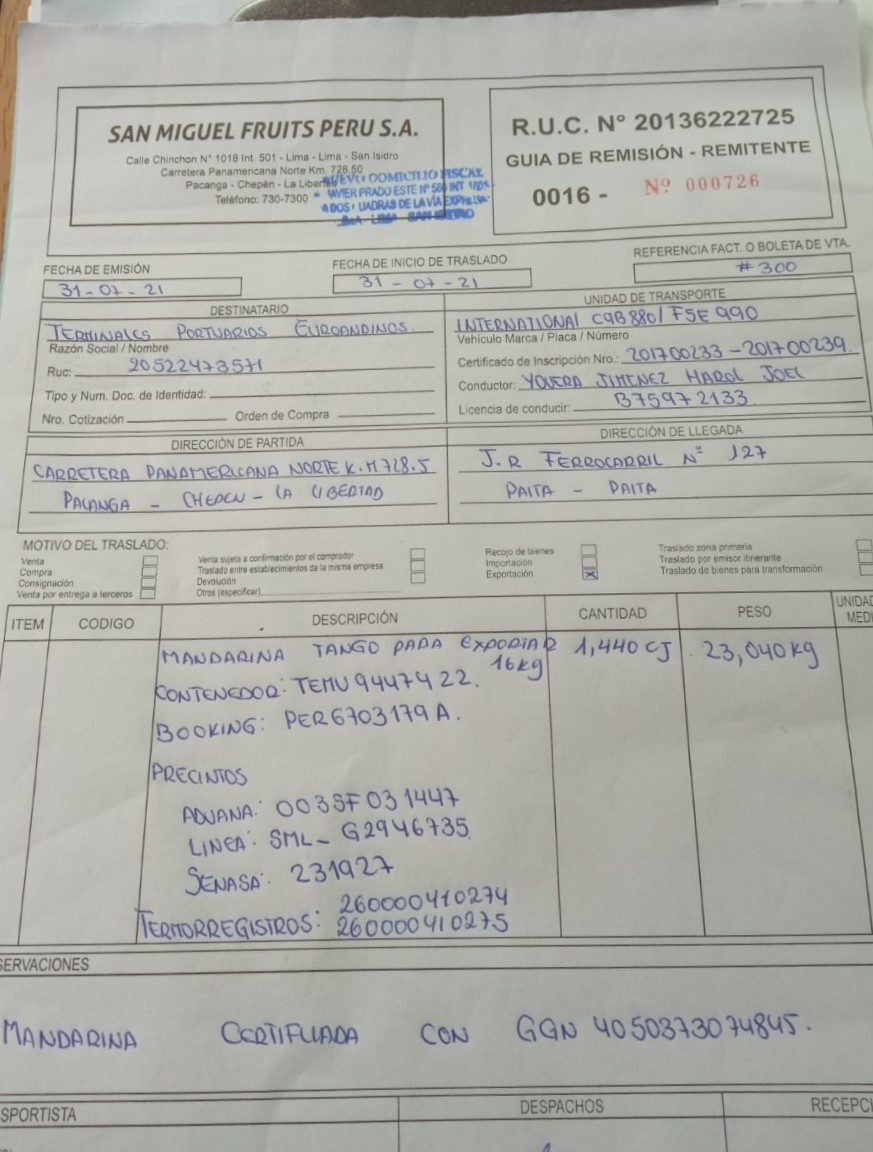 SAN MIGUEL FRUITS PERU S.A.
Calle Chinchon N° 1018 Int. 501 - Lima - Lima - San Isidro
Carretera Panamericana Norte Km. 728.50
Pacanga - Chepén - La Libertad
Teléfono: 730-7300
NUEVO DOMICILIO FISCAL
JAVIER PRADO ESTE N° INT
CUADRAS DE LA VÍA
LIMA SAN ISIDRO
R.U.C. N° 20136222725
GUIA DE REMISIÓN - REMITENTE
0016 - Nº 000726
FECHA DE EMISIÓN
31-07-21
FECHA DE INICIO DE TRASLADO
31-07-21
REFERENCIA FACT. O BOLETA DE VTA.
#300
DESTINATARIO
TERMINALES PORTUARIOS EUROANDINOS.
Razón Social / Nombre
Ruc: 20522473571
Tipo y Num. Doc. de Identidad:
Nro. Cotización Orden de Compra
UNIDAD DE TRANSPORTE
INTERNATIONAL C9B880/F5E990
Vehículo Marca / Placa / Número
Certificado de Inscripción Nro.: 201700233-201700239
Conductor: YOVERA JIMENEZ HAROL JOEL
Licencia de conducir: B75972133
DIRECCIÓN DE PARTIDA
CARRETERA PANAMERICANA NORTE K.M 728.5
PACANGA - CHEPEN - LA LIBERTAD
DIRECCIÓN DE LLEGADA
J.R FERROCARRIL Nº 127
PAITA - PAITA
MOTIVO DEL TRASLADO:
Venta
Compra
Consignación
Venta por entrega a terceros
Venta sujeta a confirmación por el comprador
Traslado entre establecimientos de la misma empresa
Devolución
Otros (especificar)
Recojo de bienes
Importación
Exportación X
Traslado zona primaria
Traslado por emisor itinerante
Traslado de bienes para transformación
ITEM CODIGO DESCRIPCIÓN CANTIDAD PESO UNIDAD MEDI
MANDARINA TANGO PARA EXPORTAR 1,440 CJ 23,040 kg
16kg
CONTENEDOR: TEMU 9447422.
BOOKING: PER6703179A.
PRECINTOS
ADUANA: 003SF031447
LINEA: SML-G2946735
SENASA: 231927
TERMORREGISTROS: 260000410274
260000410275
SERVACIONES
MANDARINA CERTIFICADA CON GGN 4050373074845.
SPORTISTA DESPACHOS RECEPCI